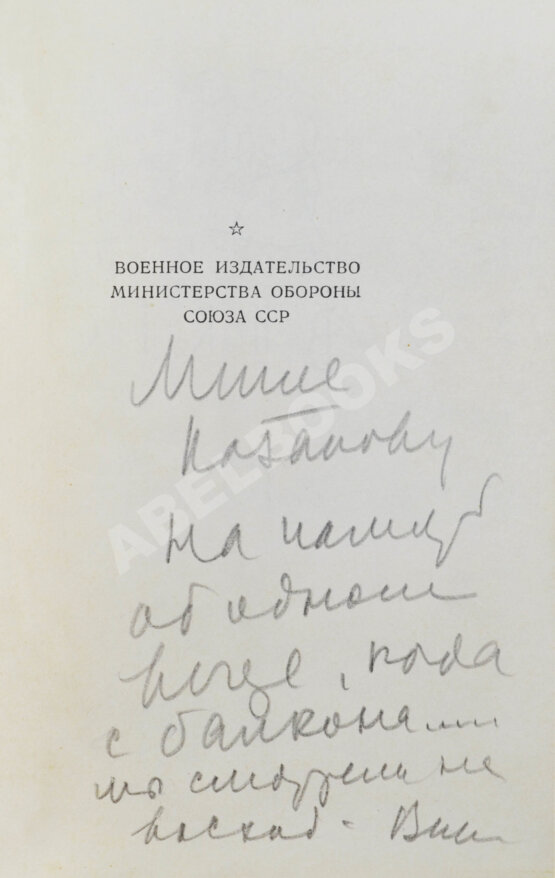 ☆
ВОЕННОЕ ИЗДАТЕЛЬСТВО
МИНИСТЕРСТВА ОБОРОНЫ
СОЮЗА ССР
Мише
Козакову
На память
об одном
, когда
с балкона
мы смотрели на
восход -
ABELBOOKS